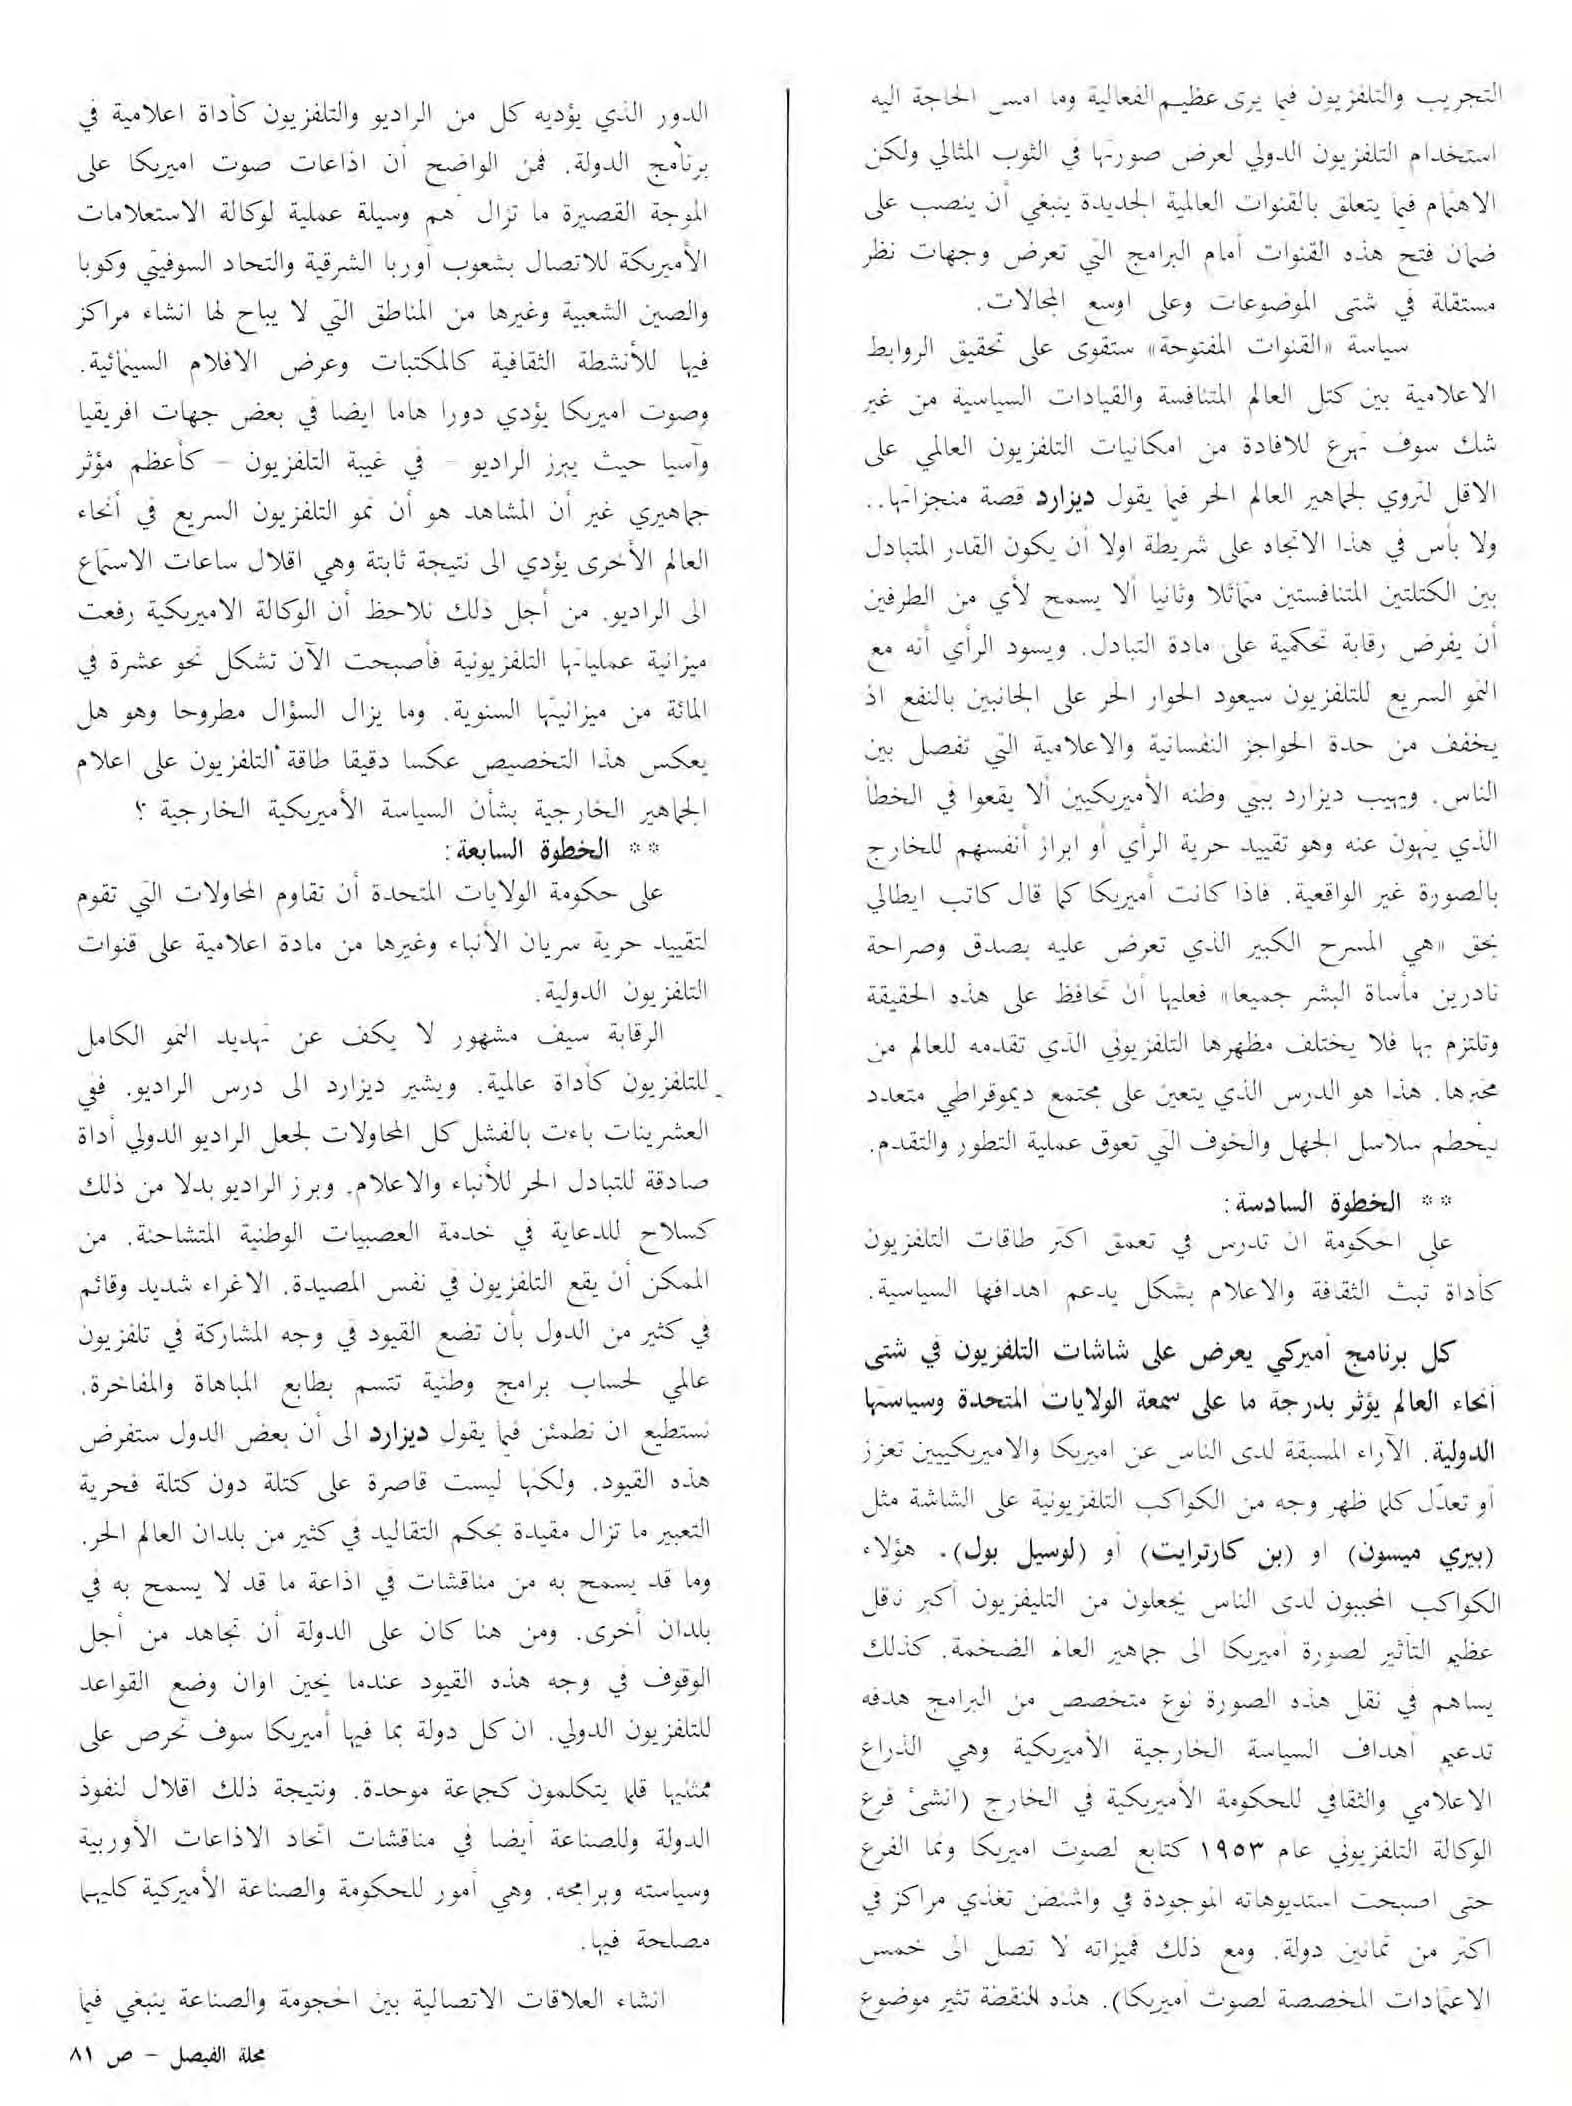 التجريب والتلفزيون فيما يرى عظيم الفعالية وما امس الحاجة اليه
استخدام التلفزيون الدولي لعرض صورتها في الثوب المثالي ولكن
الاهتمام فيما يتعلق بالقنوات العالمية الجديدة ينبغي أن ينصب على
ضمان فتح هذه القنوات أمام البرامج التي تعرض وجهات نظر
مستقلة في شتى الموضوعات وعلى اوسع المجالات.
سياسة «القنوات المفتوحة» ستقوى على تحقيق الروابط
الاعلامية بين كتل العالم المتنافسة والقيادات السياسية من غير
شك سوف تهرع للافادة من امكانيات التلفزيون العالمي على
الاقل لتروي لجماهير العالم الحر فيما يقول ديزارد قصة منجزاتها..
ولا بأس في هذا الاتجاه على شريطة اولا أن يكون القدر المتبادل
بين الكتلتين المتنافستين متماثلا وثانيا ألا يسمح لأي من الطرفين
أن يفرض رقابة تحكمية على مادة التبادل. ويسود الرأي أنه مع
النمو السريع للتلفزيون سيعود الحوار الحر على الجانبين بالنفع اذ
يخفف من حدة الحواجز النفسانية والاعلامية التي تفصل بين
الناس. ويهيب ديزارد ببني وطنه الأميريكيين ألا يقعوا في الخطأ
الذي ينهون عنه وهو تقييد حرية الرأي أو ابراز أنفسهم للخارج
بالصورة غير الواقعية. فاذا كانت أميريكا كما قال كاتب ايطالي
بحق «هي المسرح الكبير الذي تعرض عليه بصدق وصراحة
نادرين مأساة البشر جميعا» فعليها أن تحافظ على هذه الحقيقة
وتلتزم بها فلا يختلف مظهرها التلفزيوني الذي تقدمه للعالم من
مخبرها. هذا هو الدرس الذي يتعين على مجتمع ديموقراطي متعدد
ليحطم سلاسل الجهل والخوف التي تعوق عملية التطور والتقدم.
** الخطوة السادسة:
على الحكومة ان تدرس في تعمق اكثر طاقات التلفزيون
كأداة تبث الثقافة والاعلام بشكل يدعم اهدافها السياسية.
كل برنامج أميركي يعرض على شاشات التلفزيون في شتى
أنحاء العالم يؤثر بدرجة ما على سمعة الولايات المتحدة وسياستها
الدولية. الآراء المسبقة لدى الناس عن اميريكا والاميريكييين تعزز
أو تعدّل كلما ظهر وجه من الكواكب التلفزيونية على الشاشة مثل
(بيري ميسون) او (بن كارترايت) أو (لوسيل بول). هؤلاء
الكواكب المحببون لدى الناس يجعلون من التليفزيون أكبر ناقل
عظيم التأثير لصورة أميريكا الى جماهير العالم الضخمة. كذلك
يساهم في نقل هذه الصورة نوع متخصص من البرامج هدفه
تدعيم أهداف السياسة الخارجية الأميريكية وهي الذراع
الاعلامي والثقافي للحكومة الأميريكية في الخارج (انشىء فرع
الوكالة التلفزيوني عام ١٩٥٣ كتابع لصوت اميريكا ونما الفرع
حتى اصبحت استديوهاته الموجودة في واشنطن تغذي مراكز في
اكثر من ثمانين دولة. ومع ذلك فميزاته لا تصل الى خمس
الاعتمادات المخصصة لصوت أميريكا). هذه النقضة تثير موضوع
الدور الذي يؤديه كل من الراديو والتلفزيون كأداة اعلامية في
برنامج الدولة. فمن الواضح أن اذاعات صوت اميريكا على
الموجة القصيرة ما تزال هم وسيلة عملية لوكالة الاستعلامات
الأميريكة للاتصال بشعوب أوربا الشرقية والتحاد السوفيتي وكوبا
والصين الشعبية وغيرها من المناطق التي لا يباح لها انشاء مراكز
فيها للأنشطة الثقافية كالمكتبات وعرض الافلام السينمائية.
وصوت اميريكا يؤدي دورا هاما ايضا في بعض جهات افريقيا
وآسيا حيث يبرز الراديو - في غيبة التلفزيون - كأعظم مؤثر
جماهيري غير أن المشاهد هو أن نمو التلفزيون السريع في أنحاء
العالم الأخرى يؤدي الى نتيجة ثابتة وهي اقلال ساعات الاستماع
الى الراديو. من أجل ذلك نلاحظ أن الوكالة الاميريكية رفعت
ميزانية عملياتها التلفزيونية فأصبحت الآن تشكل نحو عشرة في
المائة من ميزانيتها السنوية. وما يزال السؤال مطروحا وهو هل
يعكس هذا التخصيص عكسا دقيقا طاقة التلفزيون على اعلام
الجماهير الخارجية بشأن السياسة الأميريكية الخارجية ؟
** الخطوة السابعة:
على حكومة الولايات المتحدة أن تقاوم المحاولات التي تقوم
لتقييد حرية سريان الأنباء وغيرها من مادة اعلامية على قنوات
التلفزيون الدولية.
الرقابة سيف مشهور لا يكف عن تهديد النمو الكامل
للتلفزيون كأداة عالمية. ويشير ديزارد الى درس الراديو. ففي
العشرينات باءت بالفشل كل المحاولات لجعل الراديو الدولي أداة
صادقة للتبادل الحر للأنباء والاعلام. وبرز الراديو بدلا من ذلك
كسلاح للدعاية في خدمة العصبيات الوطنية المتشاحنة. من
الممكن أن يقع التلفزيون في نفس المصيدة. الاغراء شديد وقائم
في كثير من الدول بأن تضع القيود في وجه المشاركة في تلفزيون
عالمي لحساب برامج وطنية تتسم بطابع المباهاة والمفاخرة.
نستطيع ان نطمئن فيما يقول ديزارد الى أن بعض الدول ستفرض
هذه القيود. ولكنها ليست قاصرة على كتلة دون كتلة فحرية
التعبير ما تزال مقيدة بحكم التقاليد في كثير من بلدان العالم الحر.
وما قد يسمح به من مناقشات في اذاعة ما قد لا يسمح به في
بلدان أخرى. ومن هنا كان على الدولة أن تجاهد من أجل
الوقوف في وجه هذه القيود عندما يحين اوان وضع القواعد
للتلفزيون الدولي. ان كل دولة بما فيها أميريكا سوف تحرص على
ممثليها قلما يتكلمون كجماعة موحدة. ونتيجة ذلك اقلال لنفوذ
الدولة وللصناعة أيضا في مناقشات اتحاد الاذاعات الأوربية
وسياسته وبرامجه. وهي أمور للحكومة والصناعة الأميركية كليهما
مصلحة فيها.
انشاء العلاقات الاتصالية بين الحجومة والصناعة ينبغي فيما
مجلة الفيصل - ص ٨١